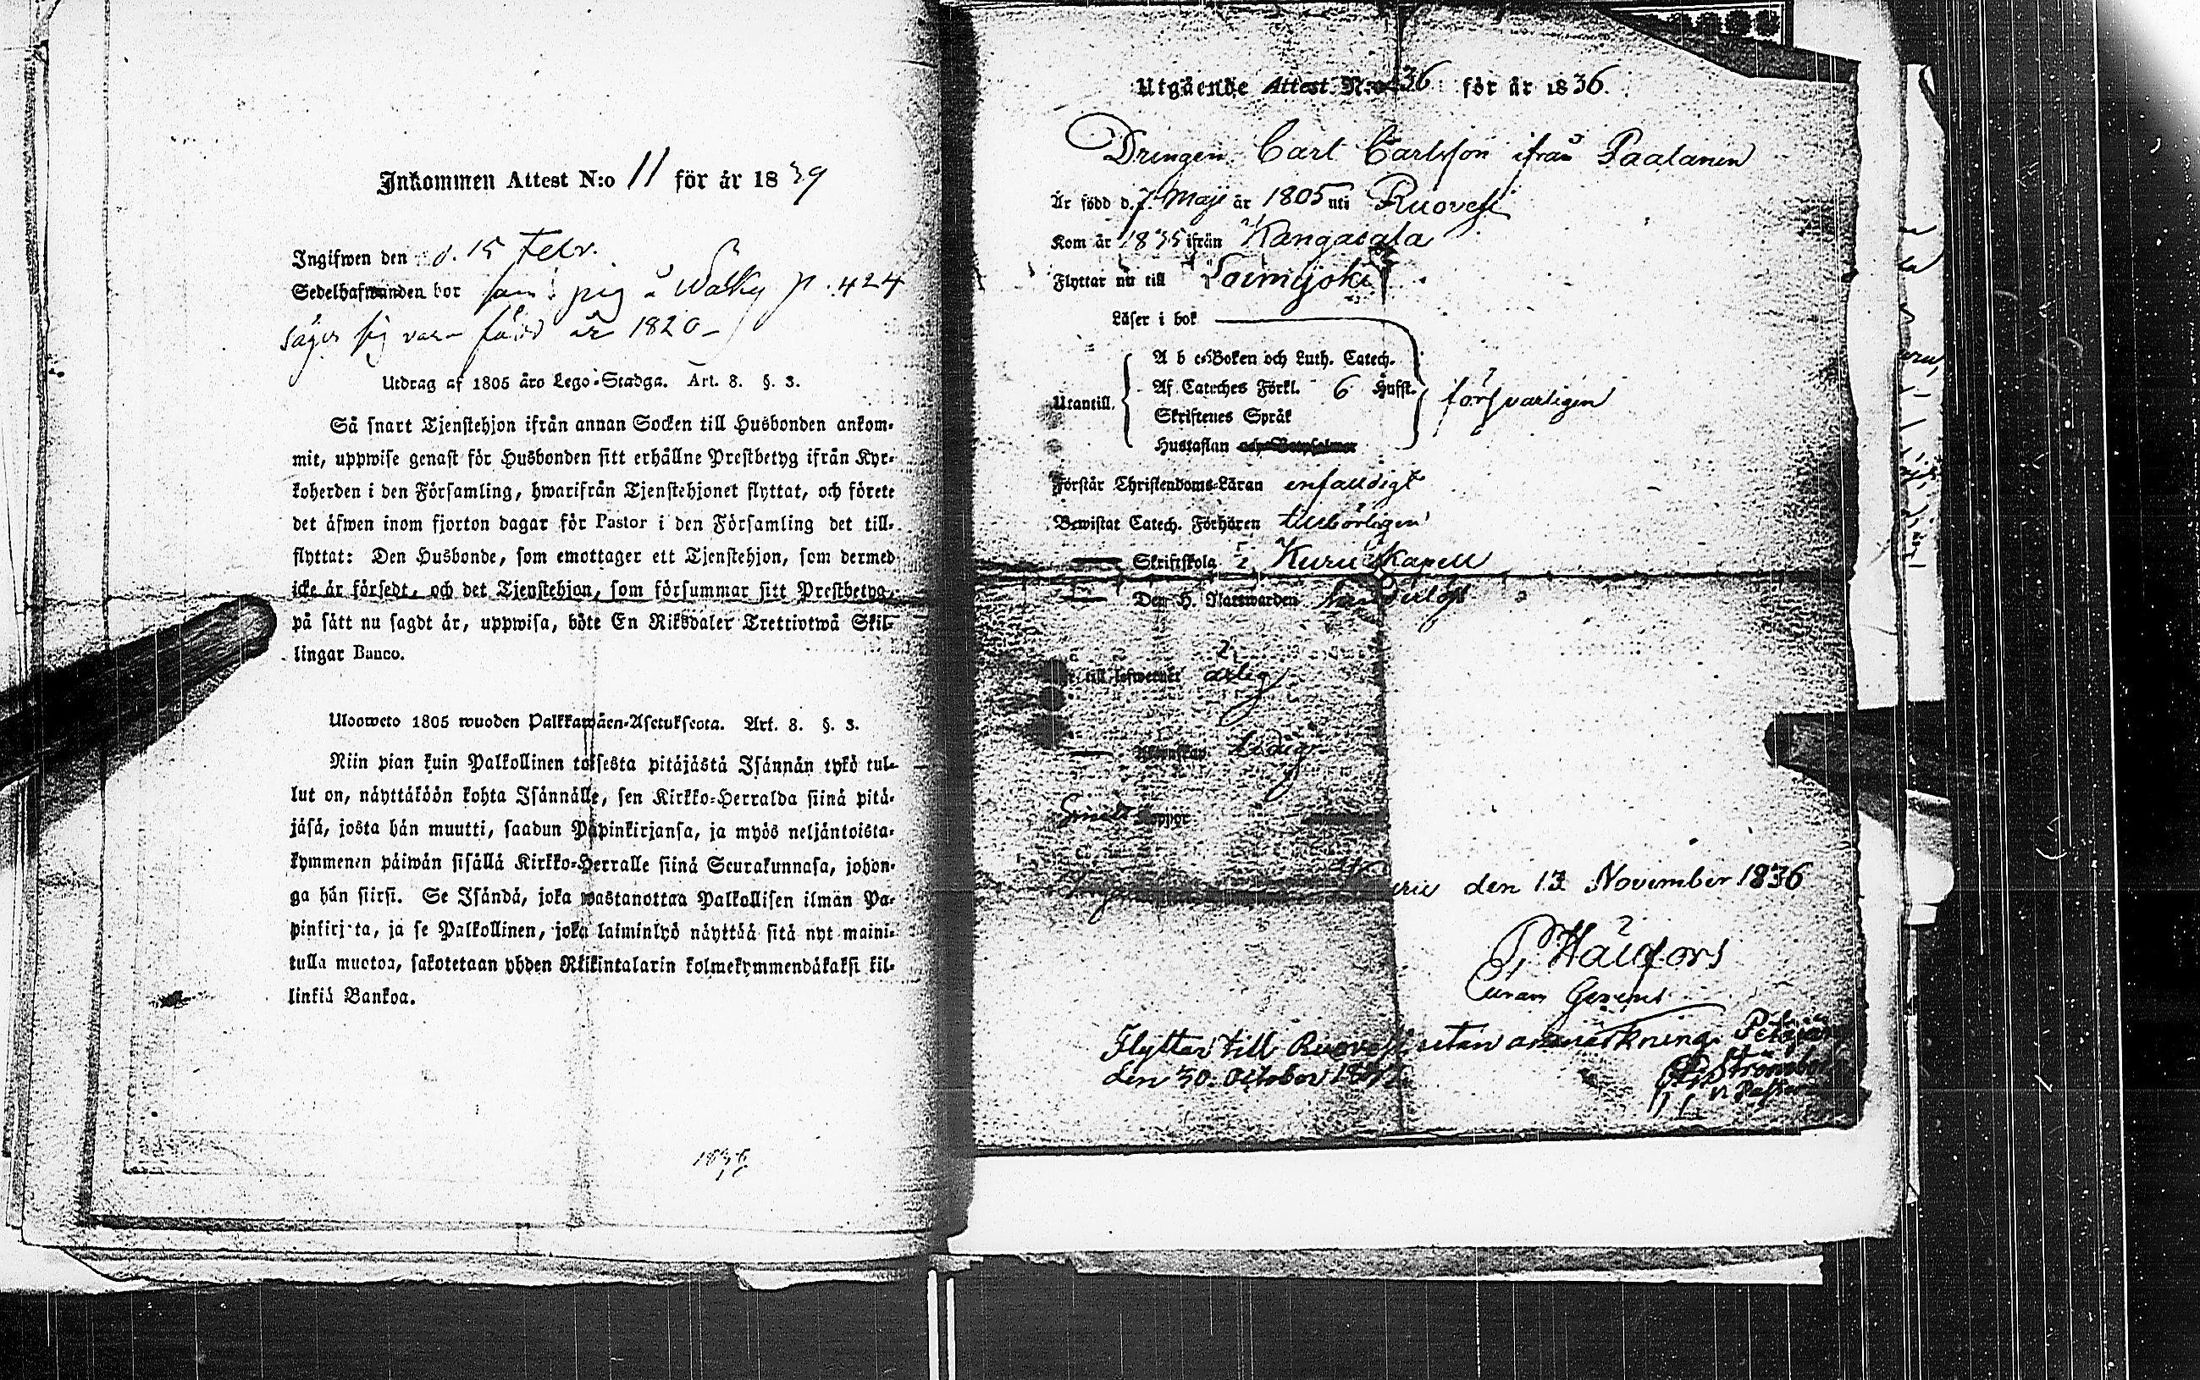 Inkommen Attest N:o 11 för år 1839
Ingifwen den d. 15 Febr.
Sedelhafwanden bor som pig å Walky p. 424
säger sig vara född år 1820
Utdrag af 1805 åro Lego-Stadga. Art. 8. §. 3.
Så snart Tjenstehjon ifrån annan Socken till Husbonden ankom-
mit, uppwise genast för Husbonden sitt erhållne Prestbetyg ifrån Kyr-
koherden i den Församling, hwarifrån Tjenstehjonet flyttat, och förete
det äfwen inom fjorton dagar för Pastor i den Församling det till-
flyttat: Den Husbonde, som emottager ett Tjenstehjon, som dermed
icke är försedt, och det Tjenstehjon, som försummar sitt Prestbetyg,
på sätt nu sagdt är, uppwisa, böte En Riksdaler Trettiotwå Skil-
lingar Banco.
Ulosweto 1805 wuoden Palkkawäen-Asetuksesta. Art. 8. §. 3.
Niin pian kuin Palkollinen toisesta pitäjästä Isännän tykö tul-
lut on, näyttäköön kohta Isännälle, sen Kirkko-Herralda siinä pitä-
jäsä, josta hän muutti, saadun Papinkirjansa, ja myös neljäntoista-
kymmenen päiwän sisällä Kirkko-Herralle siinä Seurakunnasa, johon-
ga hän siirsi. Se Isändä, joka wastanottaa Palkollisen ilman Pa-
pinkirjata, ja se Palkollinen, joka laiminlyö näyttää sitä nyt maini-
tulla muotoa, sakotetaan yhden Riikintalarin kolmekymmendäkaksi kil-
linkiä Bankoa.
1836
Utgående Attest N:o 36 för år 1836.
Drengen Carl Carlsson ifrån Paalanen
Är född d. 7 Maji år 1805 uti Ruovesi
Kom år 1835 ifrån Kangasala
Flyttar nu till Loimijoki
Läser i bok
A b c-Boken och Luth. Catech.
Utantill. Af Cateches Förkl. 6 Hufst. försvarligen
Skriftenes Språk
Hustaflan
Förstår Christendoms-Läran enfaldigt
Bewistat Catech. Förhören tillbörligen
Skriftskola i Kuru Kapell
Den H. Nattwarden
till lefwernet ärlig
Ledig
Koppor
den 13 November 1836
P. Häggfors
Curam Gerens
Flyttar till Ruovesi utan anmärkning.
den 30. October